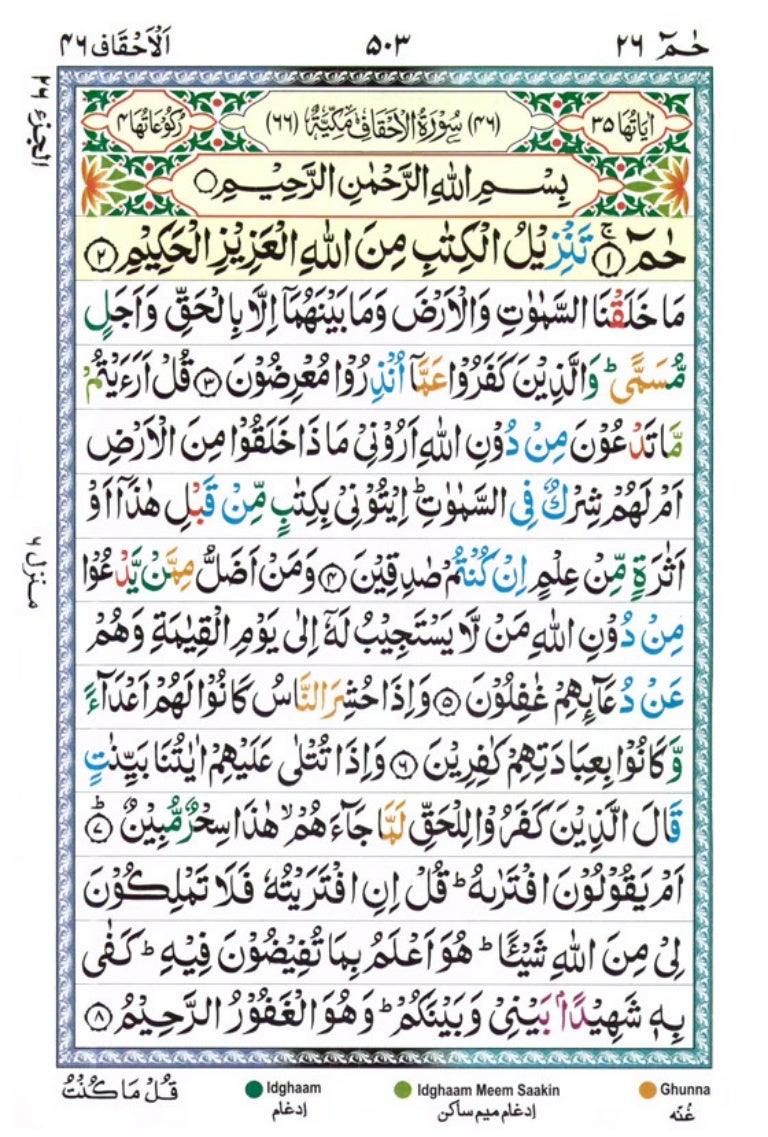 حٰمٓ ٢٦
٥٠٣
اَلْاَحْقَاف ٤٦
اٰيَاتُهَا ٣٥
(٤٦) سُوْرَةُ الْاَحْقَافِ مَكِّيَّةٌ (٦٦)
رُكُوْعَاتُهَا ٤
الجزء ٢٦
بِسْمِ اللهِ الرَّحْمٰنِ الرَّحِيْمِ ○
حٰمٓ ۚ ﴿١﴾ تَنْزِيْلُ الْكِتٰبِ مِنَ اللهِ الْعَزِيْزِ الْحَكِيْمِ ﴿٢﴾
مَا خَلَقْنَا السَّمٰوٰتِ وَالْاَرْضَ وَمَا بَيْنَهُمَآ اِلَّا بِالْحَقِّ وَاَجَلٍ
مُّسَمًّى ؕ وَالَّذِيْنَ كَفَرُوْا عَمَّآ اُنْذِرُوْا مُعْرِضُوْنَ ﴿٣﴾ قُلْ اَرَءَيْتُمْ
مَّا تَدْعُوْنَ مِنْ دُوْنِ اللهِ اَرُوْنِيْ مَاذَا خَلَقُوْا مِنَ الْاَرْضِ
اَمْ لَهُمْ شِرْكٌ فِى السَّمٰوٰتِ ؕ اِيْتُوْنِيْ بِكِتٰبٍ مِّنْ قَبْلِ هٰذَآ اَوْ
اَثٰرَةٍ مِّنْ عِلْمٍ اِنْ كُنْتُمْ صٰدِقِيْنَ ﴿٤﴾ وَمَنْ اَضَلُّ مِمَّنْ يَّدْعُوْا
منزل ٦
مِنْ دُوْنِ اللهِ مَنْ لَّا يَسْتَجِيْبُ لَهٗٓ اِلٰى يَوْمِ الْقِيٰمَةِ وَهُمْ
عَنْ دُعَآئِهِمْ غٰفِلُوْنَ ﴿٥﴾ وَاِذَا حُشِرَ النَّاسُ كَانُوْا لَهُمْ اَعْدَآءً
وَّكَانُوْا بِعِبَادَتِهِمْ كٰفِرِيْنَ ﴿٦﴾ وَاِذَا تُتْلٰى عَلَيْهِمْ اٰيٰتُنَا بَيِّنٰتٍ
قَالَ الَّذِيْنَ كَفَرُوْا لِلْحَقِّ لَمَّا جَآءَهُمْ ۙ هٰذَا سِحْرٌ مُّبِيْنٌ ؕ ﴿٧﴾
اَمْ يَقُوْلُوْنَ افْتَرٰىهُ ؕ قُلْ اِنِ افْتَرَيْتُهٗ فَلَا تَمْلِكُوْنَ
لِيْ مِنَ اللهِ شَيْئًا ؕ هُوَ اَعْلَمُ بِمَا تُفِيْضُوْنَ فِيْهِ ؕ كَفٰى
بِهٖ شَهِيْدًاۢ بَيْنِيْ وَبَيْنَكُمْ ؕ وَهُوَ الْغَفُوْرُ الرَّحِيْمُ ﴿٨﴾
قُلْ مَا كُنْتُ
Idghaam
إدغام
Idghaam Meem Saakin
إدغام ميم ساكن
Ghunna
غُنّه